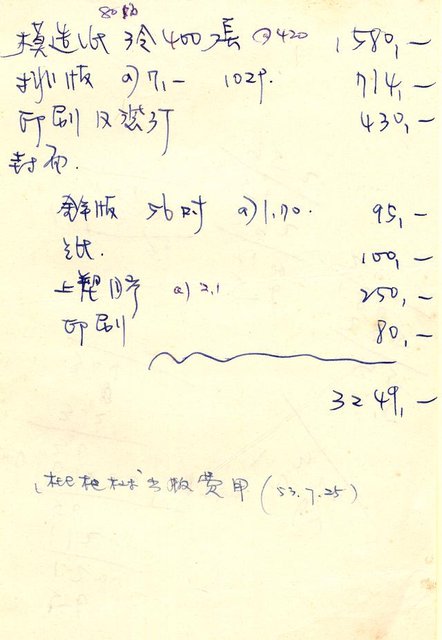 80磅
模造紙 3令400張 @420 1,580,—
排版 @7,— 102P. 714,—
印刷及裝訂 430,—
封面.
鋅版 56吋 @1.70. 95,—
紙. 100,—
上塑膠 @2.1 250,—
印刷 80,—
3249,—
"枇杷林"出版費用 (53.7.25)